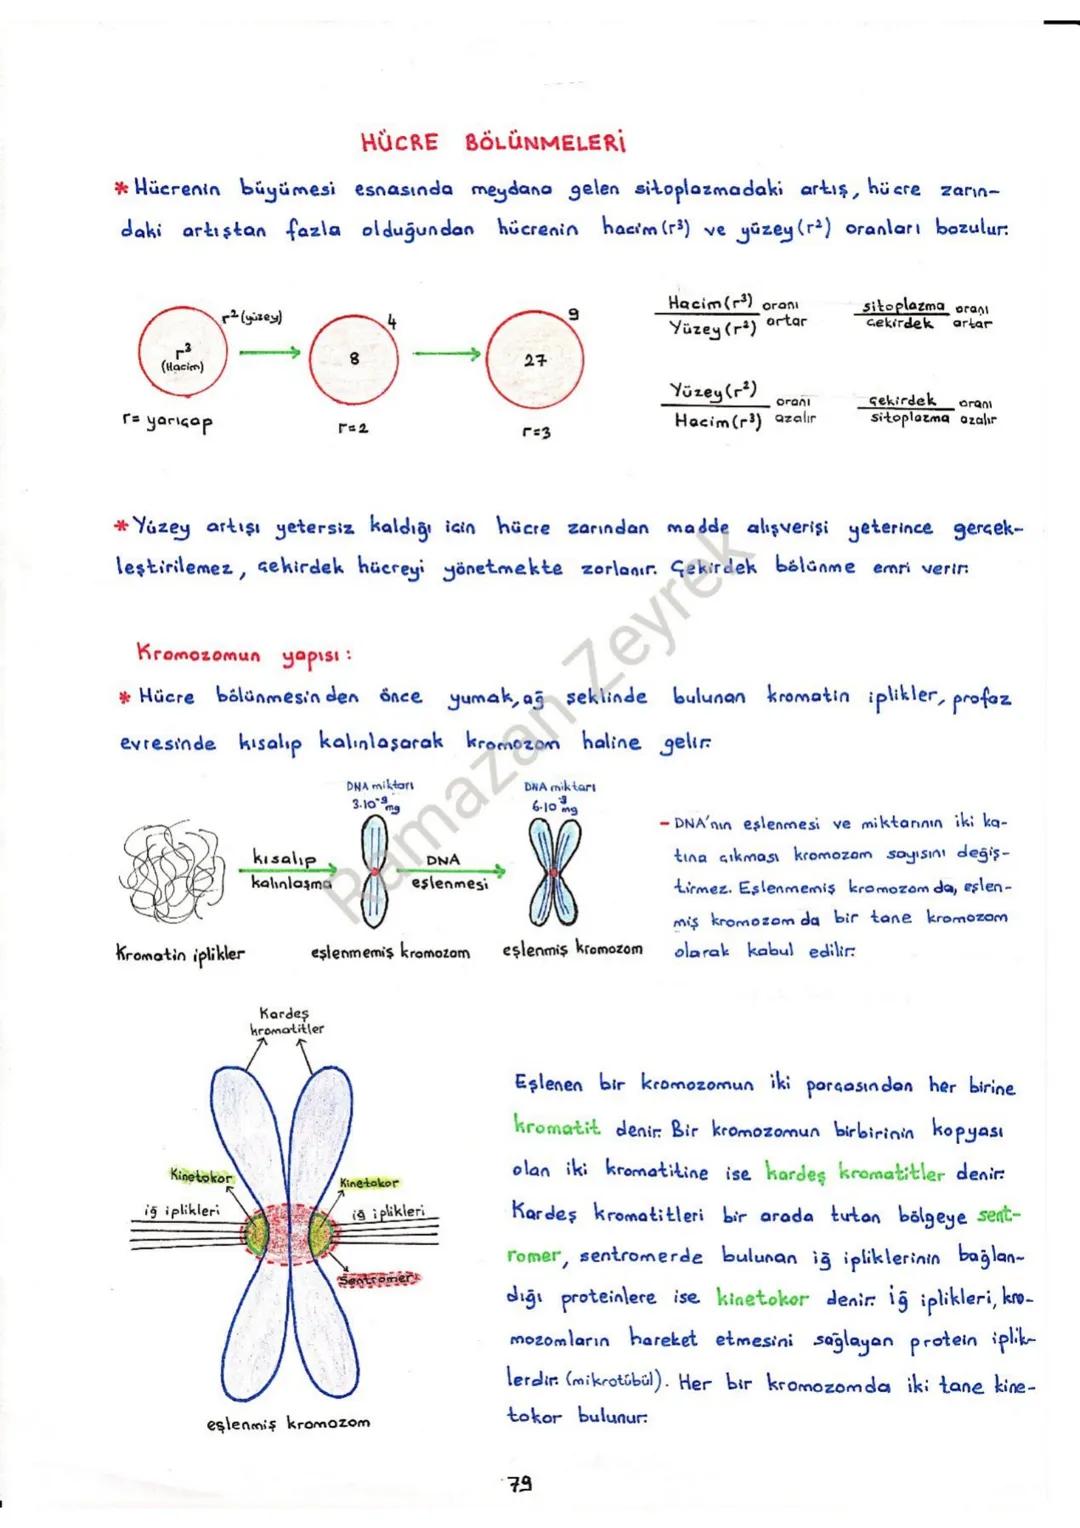 HÜCRE BÖLÜNMELERİ
* Hücrenin büyümesi esnasında meydana gelen sitoplazmadaki artış, hücre zarın-
daki artıştan fazla olduğundan hücrenin hacim (r³) ve yüzey (r²) oranları bozulur.
r² (yüzey)
r³
(Hacim)
r = yarıçap
4
8
r=2
9
27
r=3
Hacim (r³) oranı
Yüzey (r²) artar
sitoplazma oranı
çekirdek artar
Yüzey (r²) oranı
Hacim (r³) azalır
çekirdek oranı
sitoplazma azalır
* Yüzey artışı yetersiz kaldığı için hücre zarından madde alışverişi yeterince gerçek-
leştirilemez, çekirdek hücreyi yönetmekte zorlanır. Çekirdek bölünme emri verir.
Kromozomun yapısı:
* Hücre bölünmesinden önce yumak, ağ şeklinde bulunan kromatin iplikler, profaz
evresinde kısalıp kalınlaşarak kromozom haline gelir.
Kromatin iplikler
kısalıp
kalınlaşma
DNA miktarı
3.10⁻⁹ mg
eşlenmemiş kromozom
DNA
eşlenmesi
DNA miktarı
6.10⁻⁹ mg
eşlenmiş kromozom
- DNA'nın eşlenmesi ve miktarının iki ka-
tına çıkması kromozom sayısını değiş-
tirmez. Eşlenmemiş kromozom da, eşlen-
miş kromozom da bir tane kromozom
olarak kabul edilir.
Kardeş
kromatitler
Kinetokor
Kinetokor
iğ iplikleri
iğ iplikleri
Sentromer
eşlenmiş kromozom
Eşlenen bir kromozomun iki parçasından her birine
kromatit denir. Bir kromozomun birbirinin kopyası
olan iki kromatitine ise kardeş kromatitler denir.
Kardeş kromatitleri bir arada tutan bölgeye sent-
romer, sentromerde bulunan iğ ipliklerinin bağlan-
dığı proteinlere ise kinetokor denir. iğ iplikleri, kro-
mozomların hareket etmesini sağlayan protein iplik-
lerdir. (mikrotübül). Her bir kromozomda iki tane kine-
tokor bulunur.
79
Ramazan Zeyrek